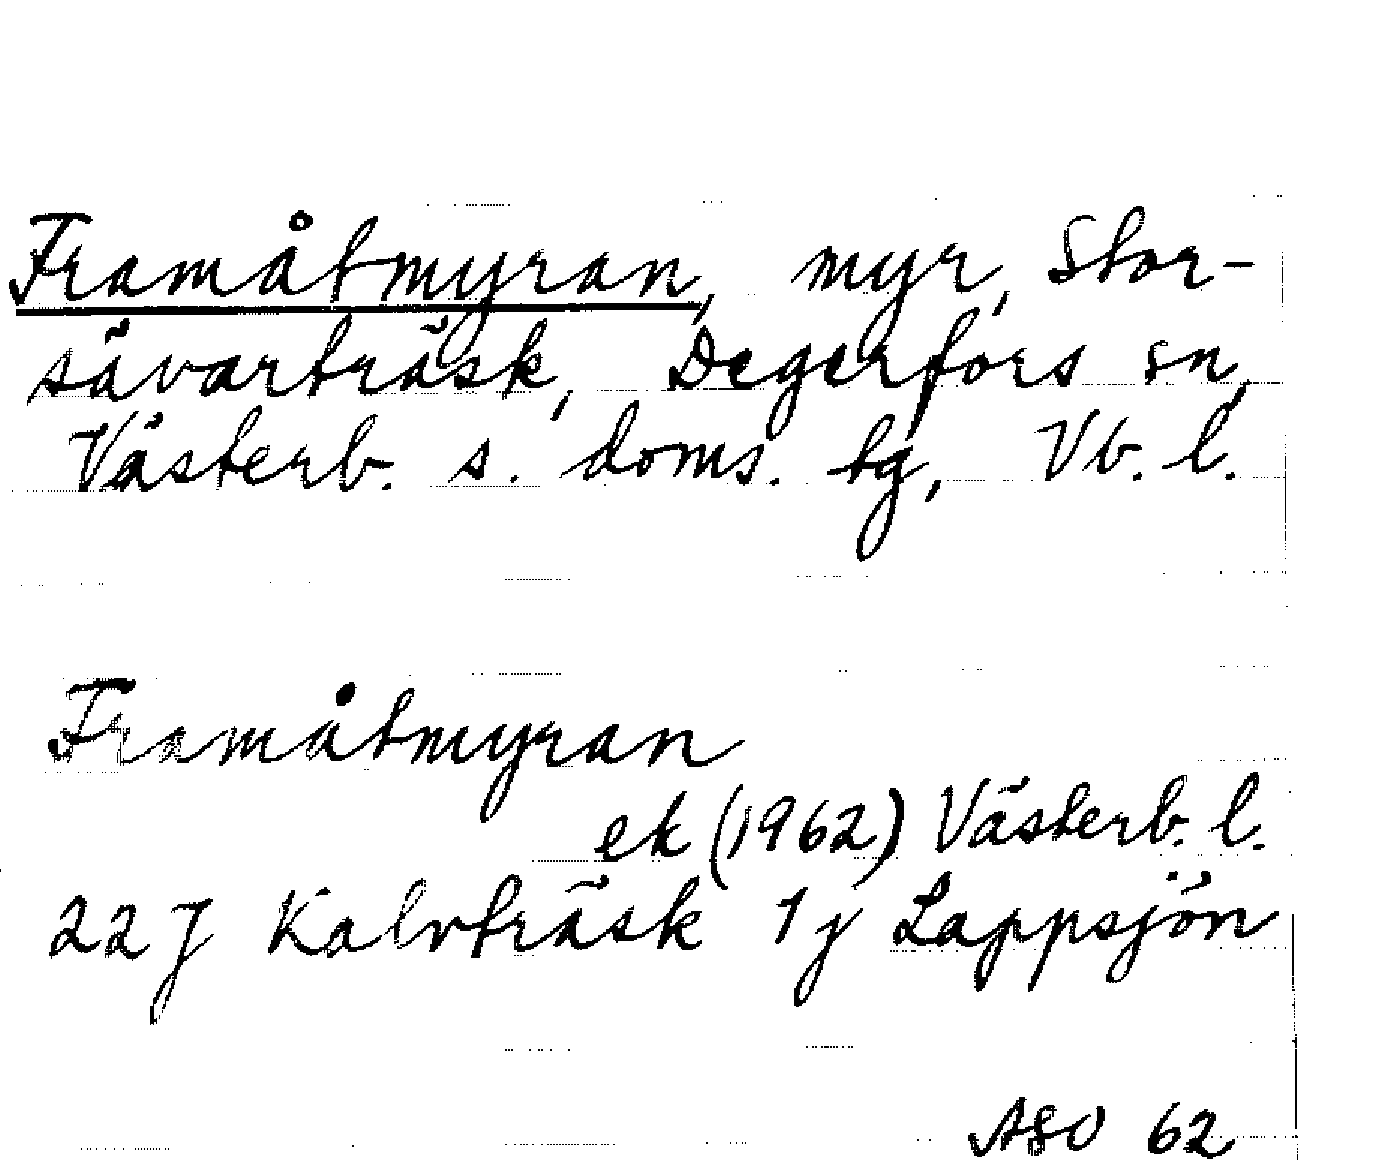 Framåtmyran, myr, Stor-
sävarträsk, Degerfors sn,
Västerb. s. doms. tg, Vb. l.
Framåtmyran
ek (1962) Västerb. l.
22 J Kalvträsk 1 j Lappsjön
ASO 62